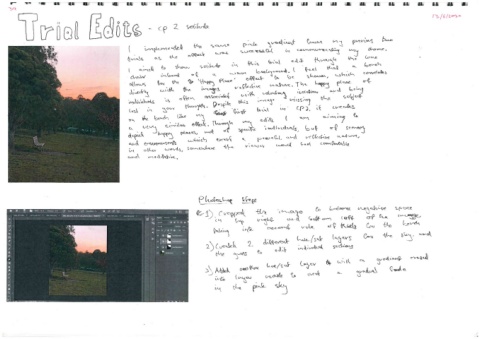 Trial Edits - cp 2 solitude
I implemented the same pink gradient from my previous
as the effect was successful in communicating my theme.
I aimed to show solitude in this trial edit through the
instead of a human background. I feel that a bench
allows for the "Happy Place" effect to be shown, which connotates
directly with the images reflective nature. The happy place of
individuals is often associated with isolation and being
lost in your thoughts. Despite this image missing the subject
on the bench like my first trial in CP2, it creates
a very similar effect. Through my edits I am aiming to
depict happy places, not of specific individuals but of
and environments which a peaceful and reflective nature,
in other words, somewhere the viewer would find comfortable
and meditative.
Photoshop Steps
1) Cropped the images to balance negative space
in top right and bottom left of the image.
taking into account rule of thirds for the bench
2) 2 different hue/sat layers for the sky and
the grass to edit individual sections
3) Added another hue/sat layer with a gradient
layer mask to add a gradual fade
in the pink sky